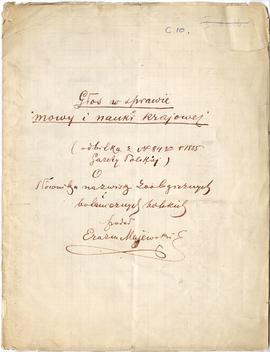 C 10.
Głos w sprawie
mowy i nauki krajowej
(odbitka z № 84 1885
Gazety Polskiej)
O
Słownika nazwisk Zoologicznych
botanicznych polskich
podał
Erazm Majewski